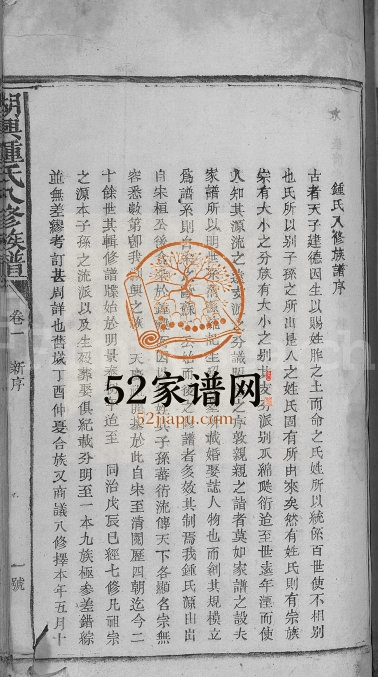 鍾氏八修族譜序
古者天子建德因生以賜姓胙之土而命之氏姓所以統係百世使不相別
也氏所以别子孫之所出是人之姓氏固有所由來矣然有姓氏則有宗族
宗有大小之分族有大小之别
派别
縮縱衍迨至世遠年湮而使
人知其源流之
識
之序敦親親之誼者莫如家譜之設夫
家譜所以明世系
載婚娶誌人物也而創其規模立
為譜系則自
後之
譜者多效其制焉我鍾氏源由出
自宋桓公後
於鍾
因以
子孫蕃衍流傳天下各顯名宗無
容悉數第鄣我
興之族
於此自宋至清閱歷四朝迄今二
十餘世其輯修譜牒始於明景泰
迨至 同治戊辰已經七修凡祖宗
之源本子孫之流派以及生殁葬娶俱紀載分明至一本九族極參差錯綜
並無差謬考訂甚周詳也舊歲丁酉仲夏合族又商議八修擇本年五月十
湖興鍾氏八修族譜
卷一 新序
一號
52家谱网
52jiapu.com